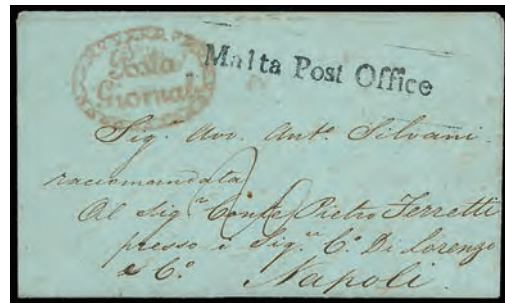 Posta
Giornal
Malta Post Office
Sigr. Avv. Anto. Silvani
raccomandata
Al Sigr. Conte Pietro Ferretti
presso i Sigri. C. Di Lorenzo
e Co. Napoli